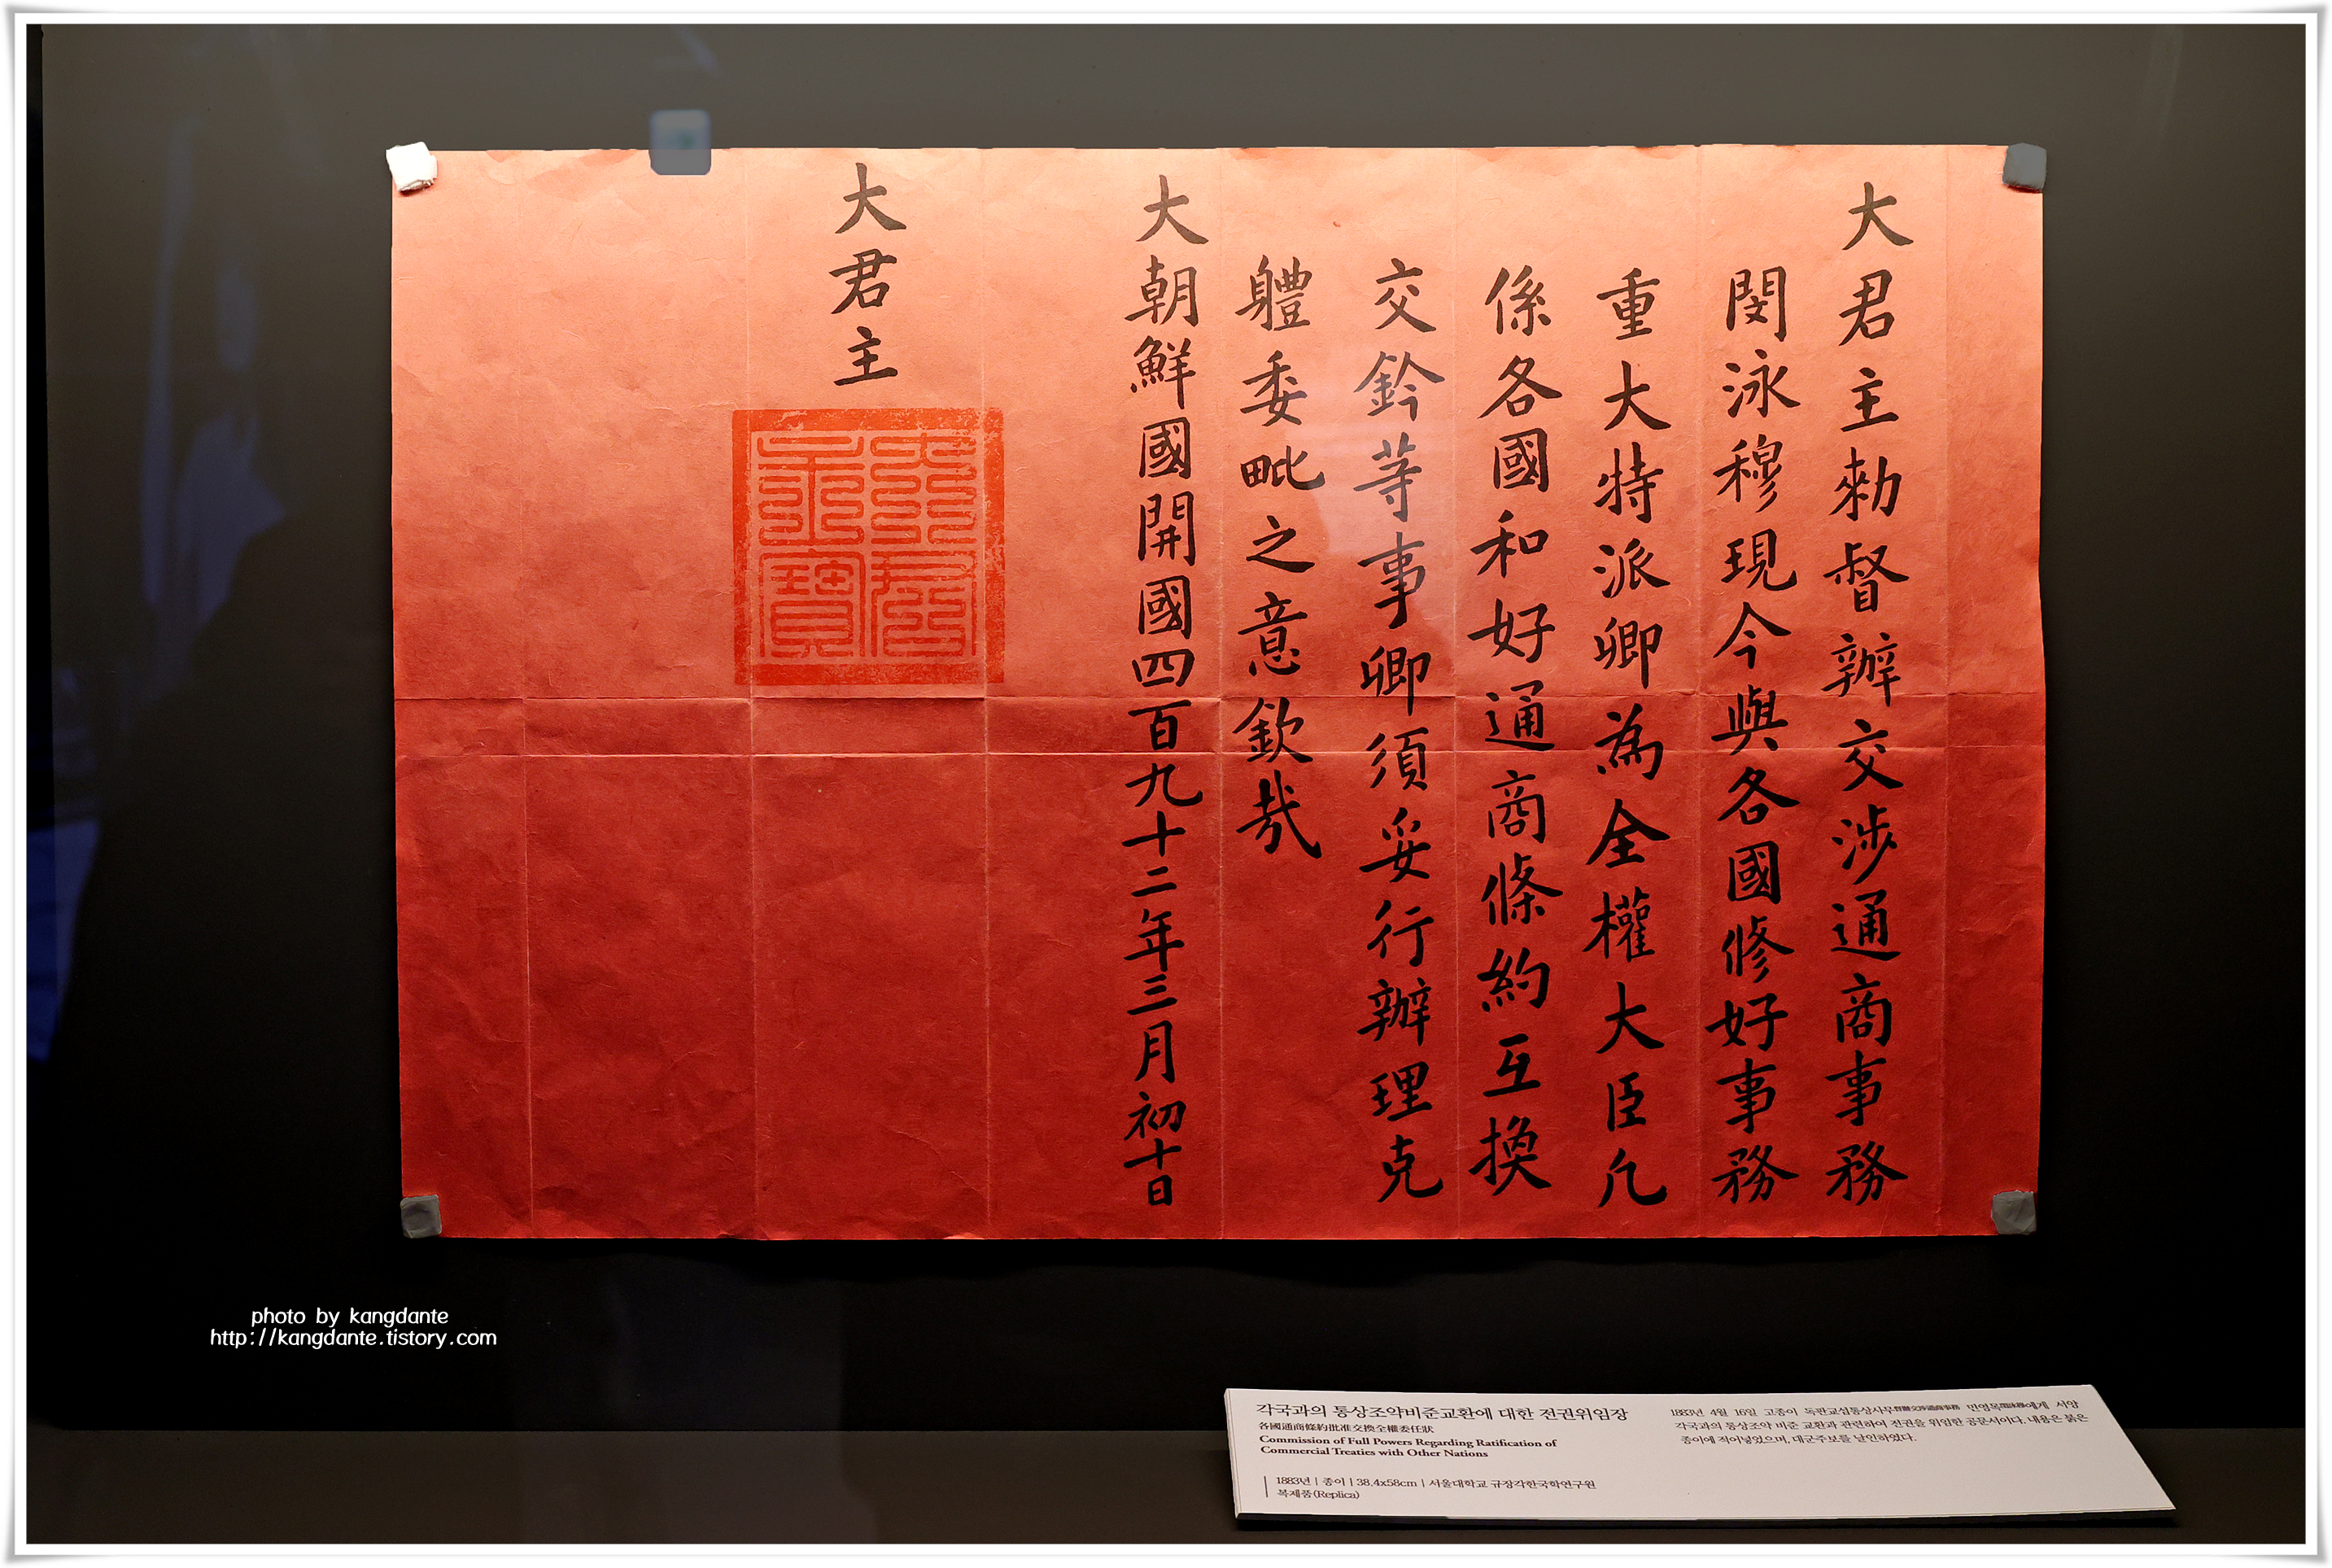 大君主勅督辦交涉通商事務
閔泳穆現今與各國修好事務
重大特派卿為全權大臣凡
係各國和好通商條約互換
交鈐等事卿須妥行辦理克
軆委毗之意欽哉
大朝鮮國開國四百九十二年三月初十日
大君主
大君主寶
photo by kangdante
http://kangdante.tistory.com
각국과의 통상조약비준교환에 대한 전권위임장
各國通商條約批准交換全權委任狀
Commission of Full Powers Regarding Ratification of
Commercial Treaties with Other Nations
1883년 | 종이 | 38.4x58cm | 서울대학교 규장각한국학연구원
복제품(Replica)
1883년 4월 16일 고종이 독판교섭통상사무督辦交涉通商事務 민영목閔泳穆에게 서양
각국과의 통상조약 비준 교환과 관련하여 전권을 위임한 공문서이다. 내용은 붉은
종이에 적어넣었으며, 대군주보를 날인하였다.